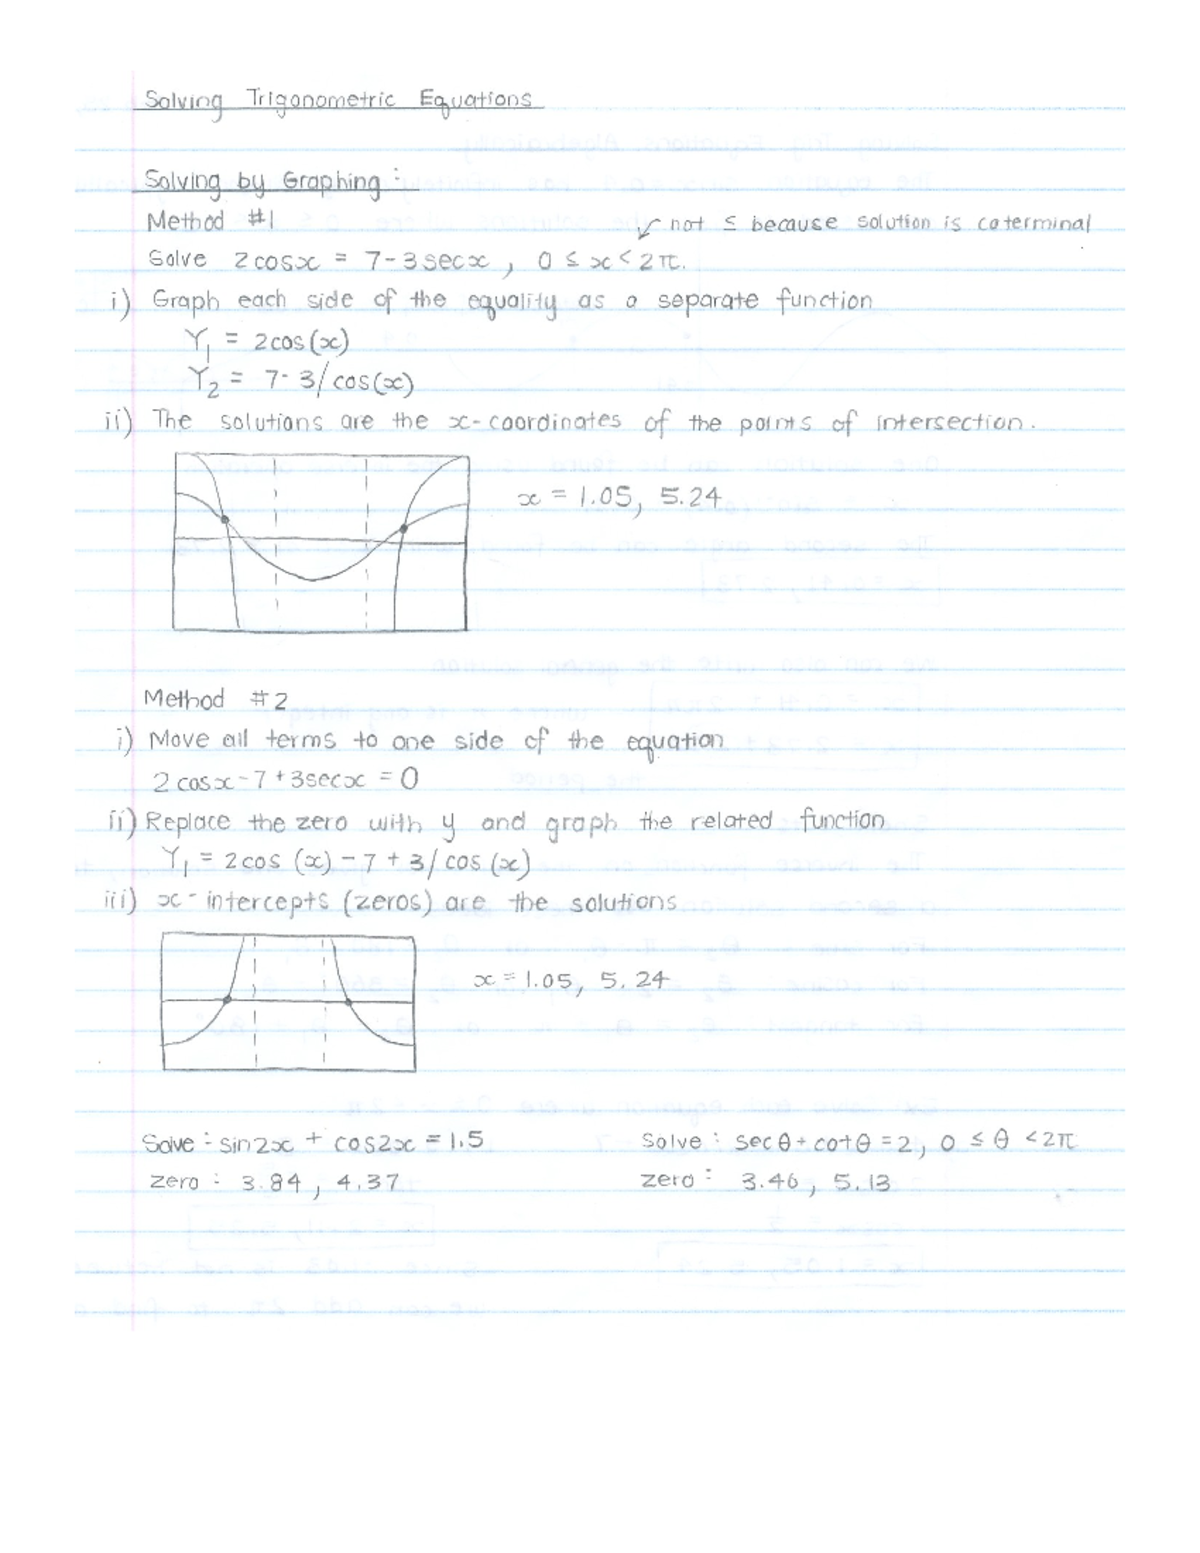 Solving Trigonometric Equations
Solving by Graphing :
Method #1
↙ not ≤ because solution is coterminal
Solve 2cosx = 7-3secx , 0 ≤ x < 2π.
i) Graph each side of the equality as a separate function
Y₁ = 2cos(x)
Y₂ = 7- 3/cos(x)
ii) The solutions are the x-coordinates of the points of intersection.
x = 1.05, 5.24
Method #2
i) Move all terms to one side of the equation
2cosx-7+3secx = 0
ii) Replace the zero with y and graph the related function
Y₁ = 2cos (x) - 7 + 3/cos (x)
iii) x-intercepts (zeros) are the solutions
x = 1.05, 5.24
Solve : sin2x + cos2x = 1.5
zero : 3.84 , 4.37
Solve : secθ + cotθ = 2, 0 ≤ θ < 2π
zero : 3.46 , 5.13